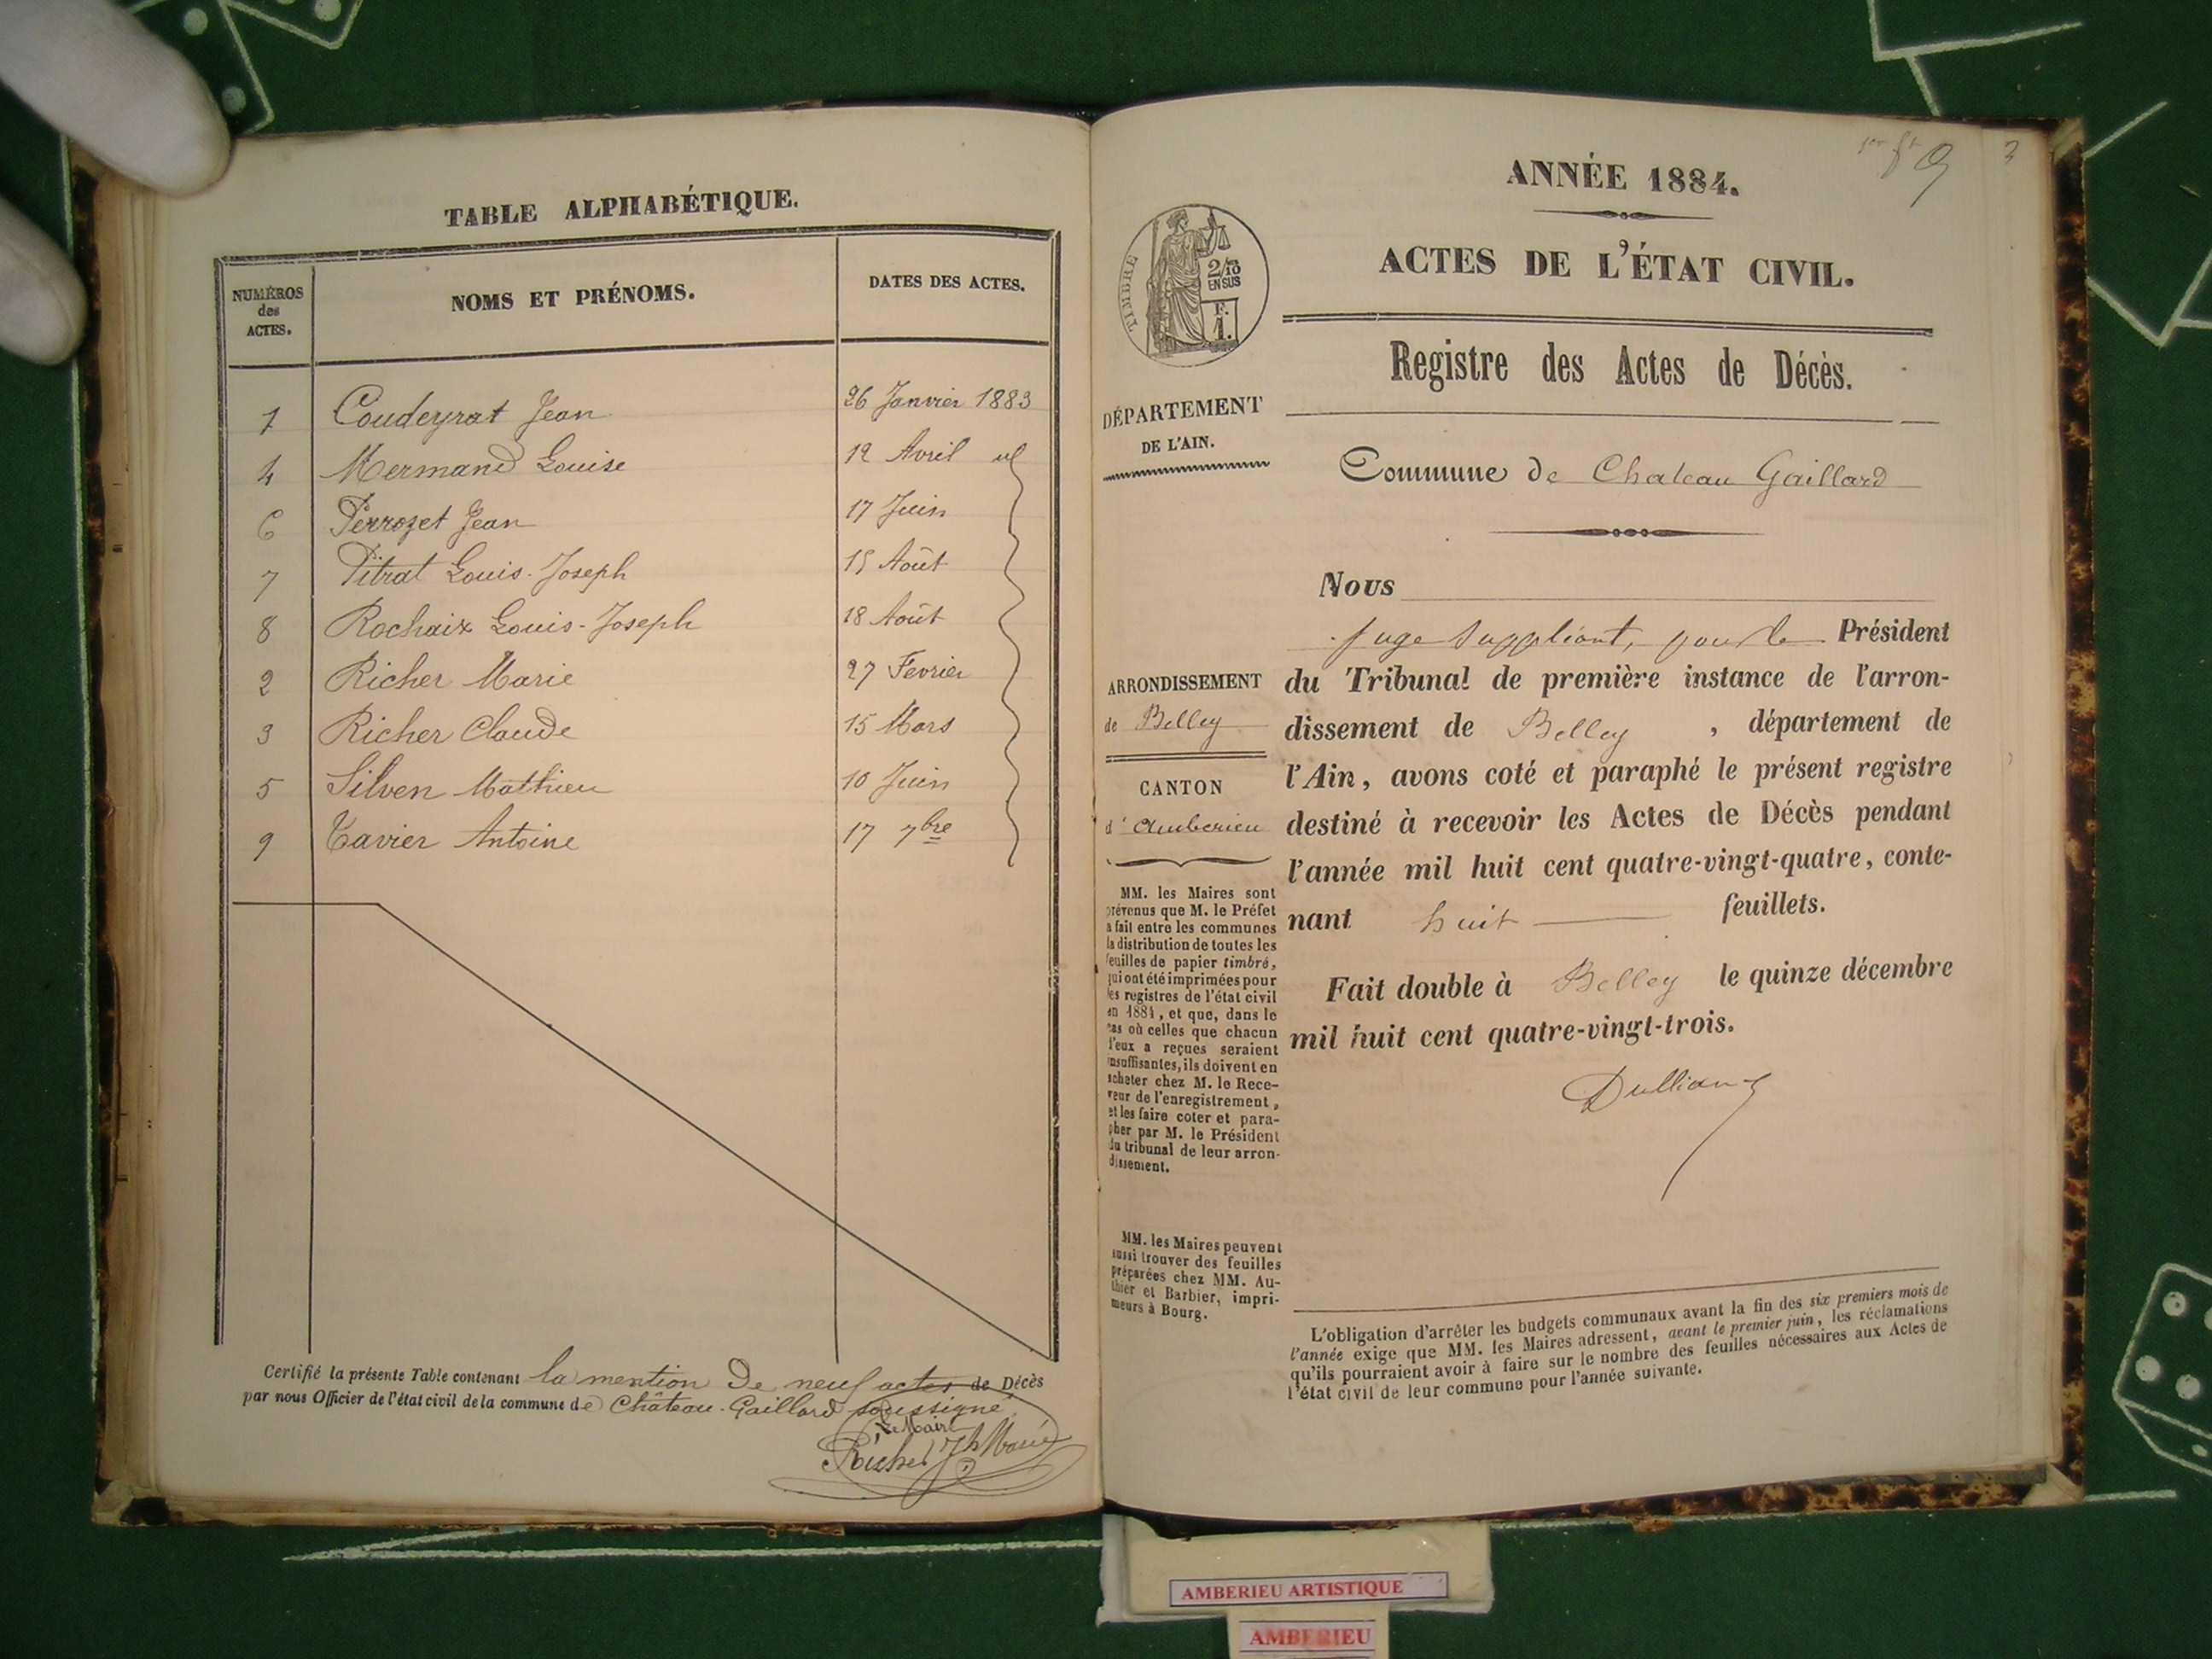 TABLE ALPHABÉTIQUE.
NUMÉROS des ACTES. NOMS ET PRÉNOMS. DATES DES ACTES.
1 Couderat Jean 26 Janvier 1883
4 Mermand Louise 12 Avril ul
6 Perrozet Jean 17 Juin
7 Pitrat Louis-Joseph 15 Août
8 Rochaix Louis-Joseph 18 Août
2 Richer Marie 27 Fevrier
3 Richer Claude 15 Mars
5 Silven Mathieu 10 Juin
9 Tavier Antoine 17 7bre
Certifié la présente Table contenant la mention de neuf actes de Décès
par nous Officier de l'état civil de la commune de Château-Gaillard soussigné
Le Maire
Richer Jh Marie
3
ANNÉE 1884.
ACTES DE L'ÉTAT CIVIL.
TIMBRE
2/10
EN SUS
F.
1.
Registre des Actes de Décès.
DÉPARTEMENT
DE L'AIN.
Commune de Chateau Gaillard
Nous
Juge Suppléant, pour le Président
du Tribunal de première instance de l'arron-
dissement de Belley, département de
l'Ain, avons coté et paraphé le présent registre
destiné à recevoir les Actes de Décès pendant
l'année mil huit cent quatre-vingt-quatre, conte-
nant huit feuillets.
Fait double à Belley le quinze décembre
mil huit cent quatre-vingt-trois.
ARRONDISSEMENT
de Belley
CANTON
d'Amberieu
MM. les Maires sont
prévenus que M. le Préfet
a fait entre les communes
la distribution de toutes les
feuilles de papier timbré,
qui ont été imprimées pour
les registres de l'état civil
en 1884, et que, dans le
cas où celles que chacun
d'eux a reçues seraient
insuffisantes, ils doivent en
acheter chez M. le Rece-
veur de l'enregistrement,
et les faire coter et para-
pher par M. le Président
du tribunal de leur arron-
dissement.
MM. les Maires peuvent
aussi trouver des feuilles
préparées chez MM. Au-
thier et Barbier, impri-
meurs à Bourg.
L'obligation d'arrêter les budgets communaux avant la fin des six premiers mois de
l'année exige que MM. les Maires adressent, avant le premier juin, les réclamations
qu'ils pourraient avoir à faire sur le nombre des feuilles nécessaires aux Actes de
l'état civil de leur commune pour l'année suivante.
AMBERIEU ARTISTIQUE
AMBERIEU